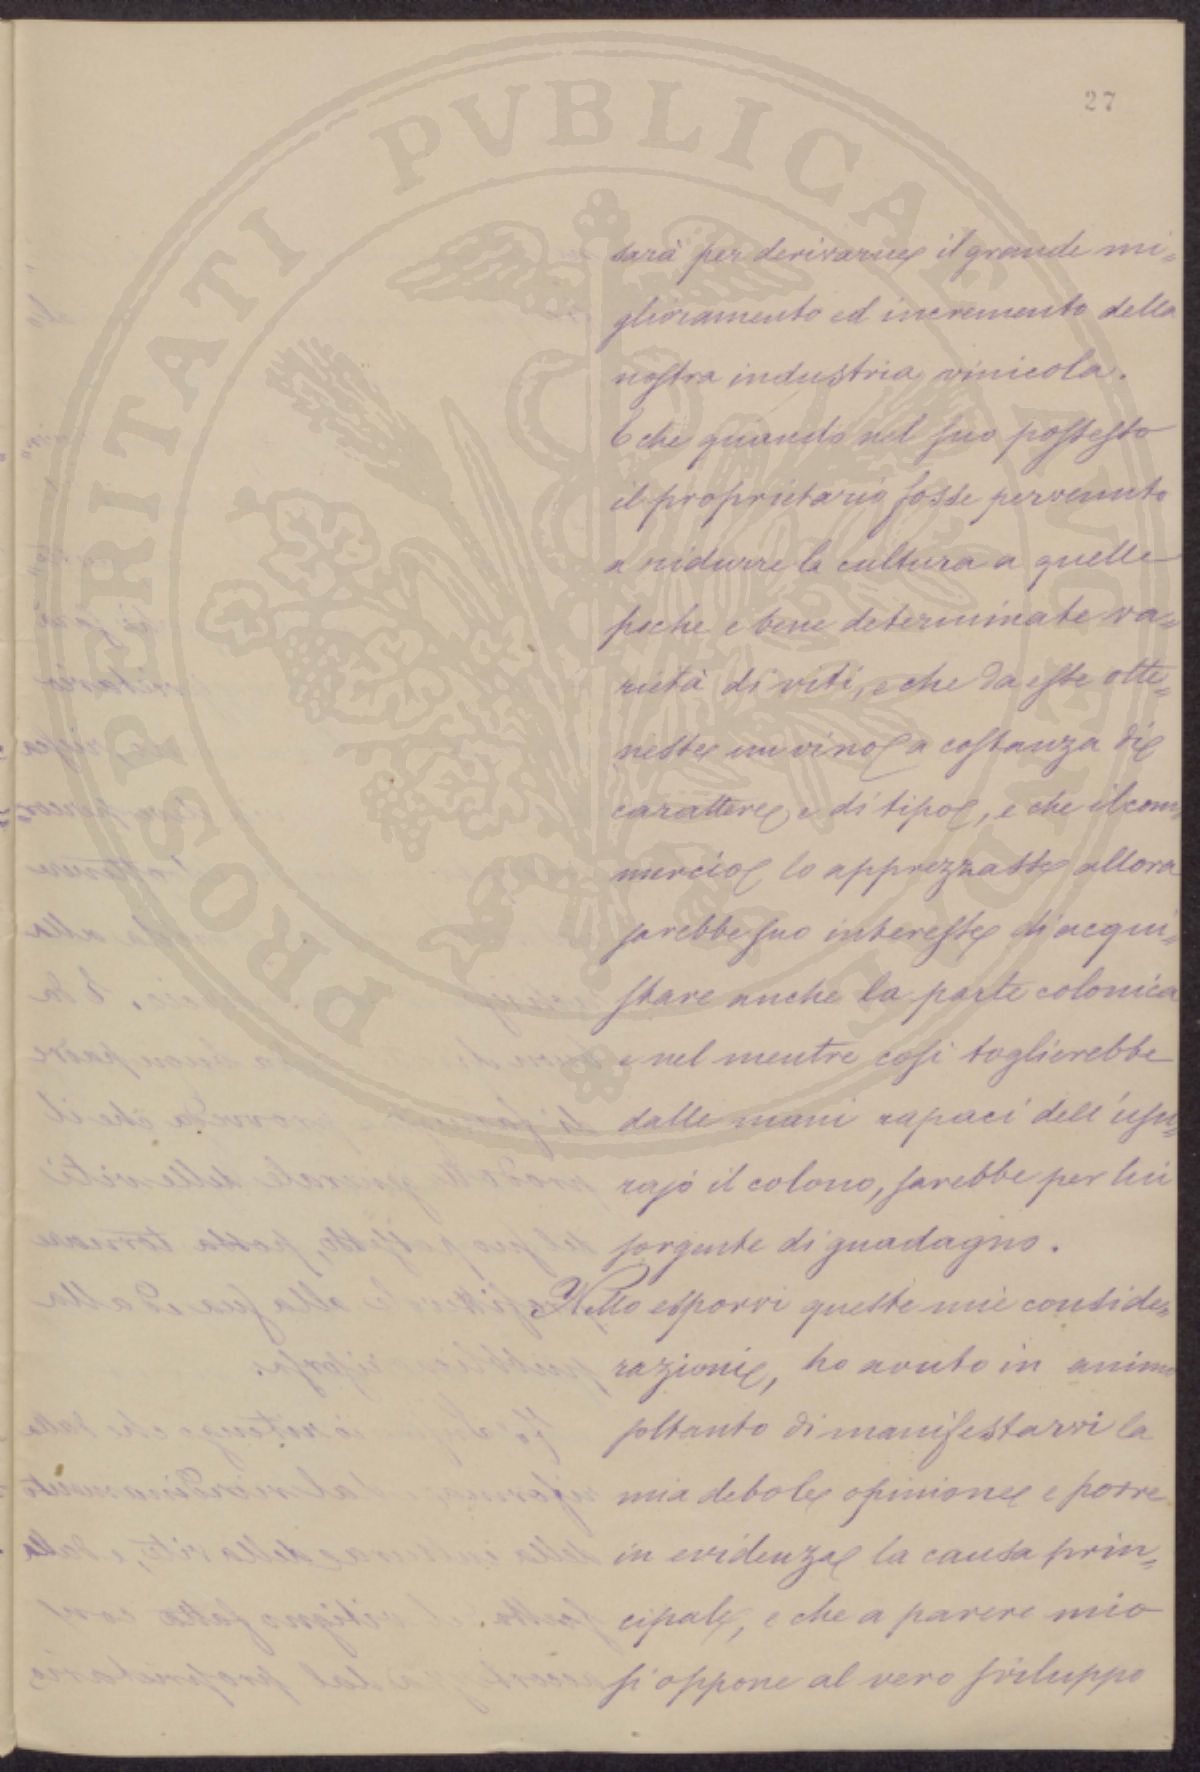 27
sarà per derivarne il grande mi=
glioramento ed incremento della
nostra industria vinicola.
E che quando nel suo possesso
il proprietario fosse pervenuto
a ridurre la cultura a quelle
poche e bene determinate va=
rietà di viti, e che da esse otte=
nesse un vino a costanza di
carattere e di tipo, e che il com=
mercio lo apprezzasse allora
sarebbe suo interesse di acqui=
stare anche la parte colonica
e nel mentre così toglierebbe
dalle mani rapaci dell'usu=
rajo il colono, sarebbe per lui
sorgente di guadagno.
Nello esporvi queste mie conside=
razioni, ho avuto in animo
soltanto di manifestarvi la
mia debole opinione e porre
in evidenza la causa prin=
cipale, e che a parere mio
si oppone al vero sviluppo
PROSPERITATI PVBLICAE AVGENDAE